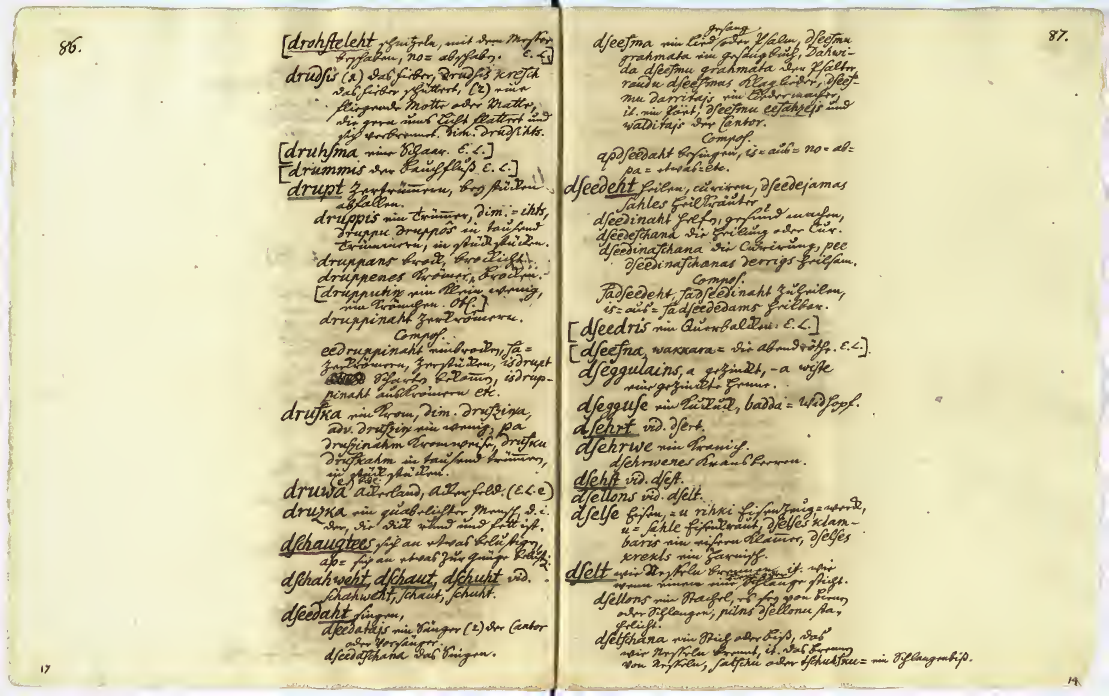 86.
[drohsteleht schnitzeln, mit dem Messer
beschaben, no= abschaben. E. L.]
drudsis (2) das Fieber, drudsis kretsch
das Fieber schüttert, (2) eine
fliegende Motte oder Matte,
die gern ums Licht flattert und
sich verbrennt. dim. drudsihts.
[druhsma eine Schaar. E. L.]
[drummis der Bauchfluß E. L.]
drupt zertrümmern, bey stücken
abfallen.
druppis ein Trümmer, dim. = ihts,
druppu druppôs in tausend
Trümmern, in stück stücken.
druppans brock, brocklicht.
druppenes Krömer, Brocken.
[drupputin ein klein wenig,
ein Krömchen. Osf.]
druppinaht zerkrömern.
Compos.
eedruppinaht einbrocken, sa=
zerkrömern, zerstücken, isdrupt
Scharten bekomen, isdrup-
pinaht auskrömern etc.
druska ein Krom, dim. druszina,
adv. druszin ein wenig, pa
druszinahm Kromweise, drusku
druskahm in tausend Trümmern,
in stück stücken.
druwa Ackerland, Ackerfeld. (E. L. e)
druzka ein quabelichter Mensch, d. i.
der, die dick rund und fett ist.
dschaugtees sich an etwas belustigen,
ap= sich an etwas zur Gnüge belust:
dschahweht, dschaut, dschuht vid.
schahweht, schaut, schuht.
dseedaht singen,
dseedatajs ein Sänger (2) der Cantor
oder Vorsänger.
dseedaschana das Singen.
17
87.
gesang
dseesma ein Lied oder Psalm, dseesmu
grahmata ein Gesangbuch, Dahwi-
da dseesmu grahmata der Psalter,
raudu dseesmas Klaglieder, dsees-
mu darritajs ein Liedermacher,
it. ein Poet, dseesmu eesahzejs und
walditajs der Cantor.
Compos.
apdseedaht besingen, is= aus= no= ab=
pa= etwas etc.
dseedeht heilen, curiren, dseedejamas
sahles Heilkräuter
dseedinaht helfen, gesund machen,
dseedeschana die Heilung oder Cur.
dseedinaschana die Curirung, pee
dseedinaschanas derrigs heilsam.
Compos.
sadseedeht, sadseedinaht zuheilen,
is= aus= sadseededams heilbar.
[dseedris ein Querbalken. E. L.]
[dseesna, wakkara= die Abendröthe. E. L.]
dseggulains, a gezinkt, -a wiste
eine gezinkte Henne.
dsegguse ein Kukuck, badda= Widhopf.
dsehrt vid. dsert.
dsehrwe ein Kranich.
dsehrwenes Kransbeeren.
dsehst vid. dsest.
dsellons vid. dselt.
dselse Eisen, = u rihki Eisenzeug=werk,
u= sahle Eisenkraut, dselses klam-
baris ein eisern Klamer, dselses
krekls ein Harnisch.
dselt wie Nesseln brennen, it. wie
wenn einem eine Schlange sticht.
dsellons ein Stachel, es sey von Bienen
oder Schlangen, pilns dsellonu sta-
chelicht.
dselschana ein Stich oder Biß, das
wie Nesseln brennt, it. das Brennen
von Nesseln, satschu oder tschuhsku= ein Schlangenbiß.